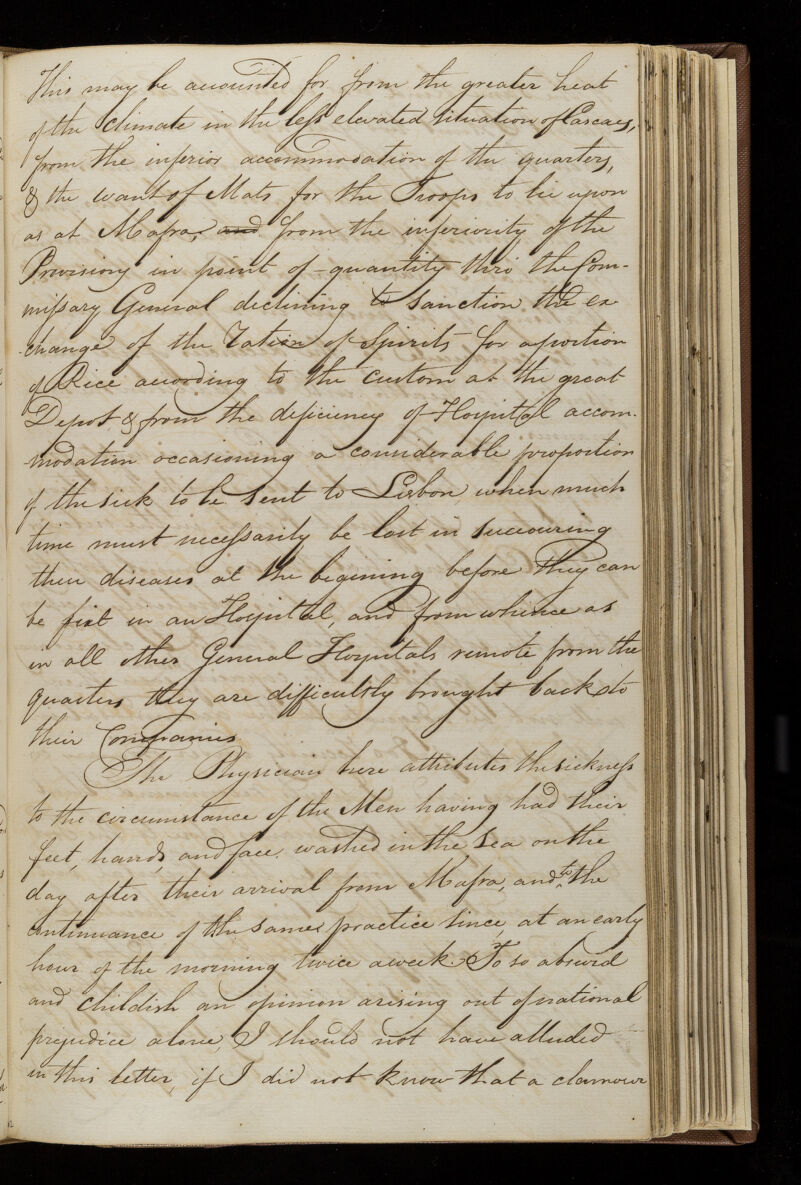 This may be accounted for from the greater heat
of the Climate in the less elevated situation of Cascaes,
from the inferior accommodation of the quarters,
& the want of Mats for the Troops to lie upon
as at Mafra, and from the inferiority of the
Provisions in point of quantity thro' the Com-
missary General declining to sanction the ex-
change of the Ration of Spirits for a portion
of Rice according to the custom at the great
Depot & from the deficiency of Hospital accom-
modation occasioning a considerable proportion
of the sick to be sent to Lisbon when much
time must necessarily be lost in succouring
their diseases at the begining before they can
be fixt in an Hospital, and from whence as
in all other General Hospitals remote from the
quarters they are difficultly brought back to
their Companies
The Physician here attributes the sickness
to the circumstance of the Men having had their
feet, hands, and face washed in the Sea on the
day after their arrival from Mafra, and to the
continuance of the same practice since, at an early
hour of the morning twice a week. To so absurd
and childish an opinion arising out of national
prejudice alone, I should not have alluded
in this letter, if I did not know that a clamour